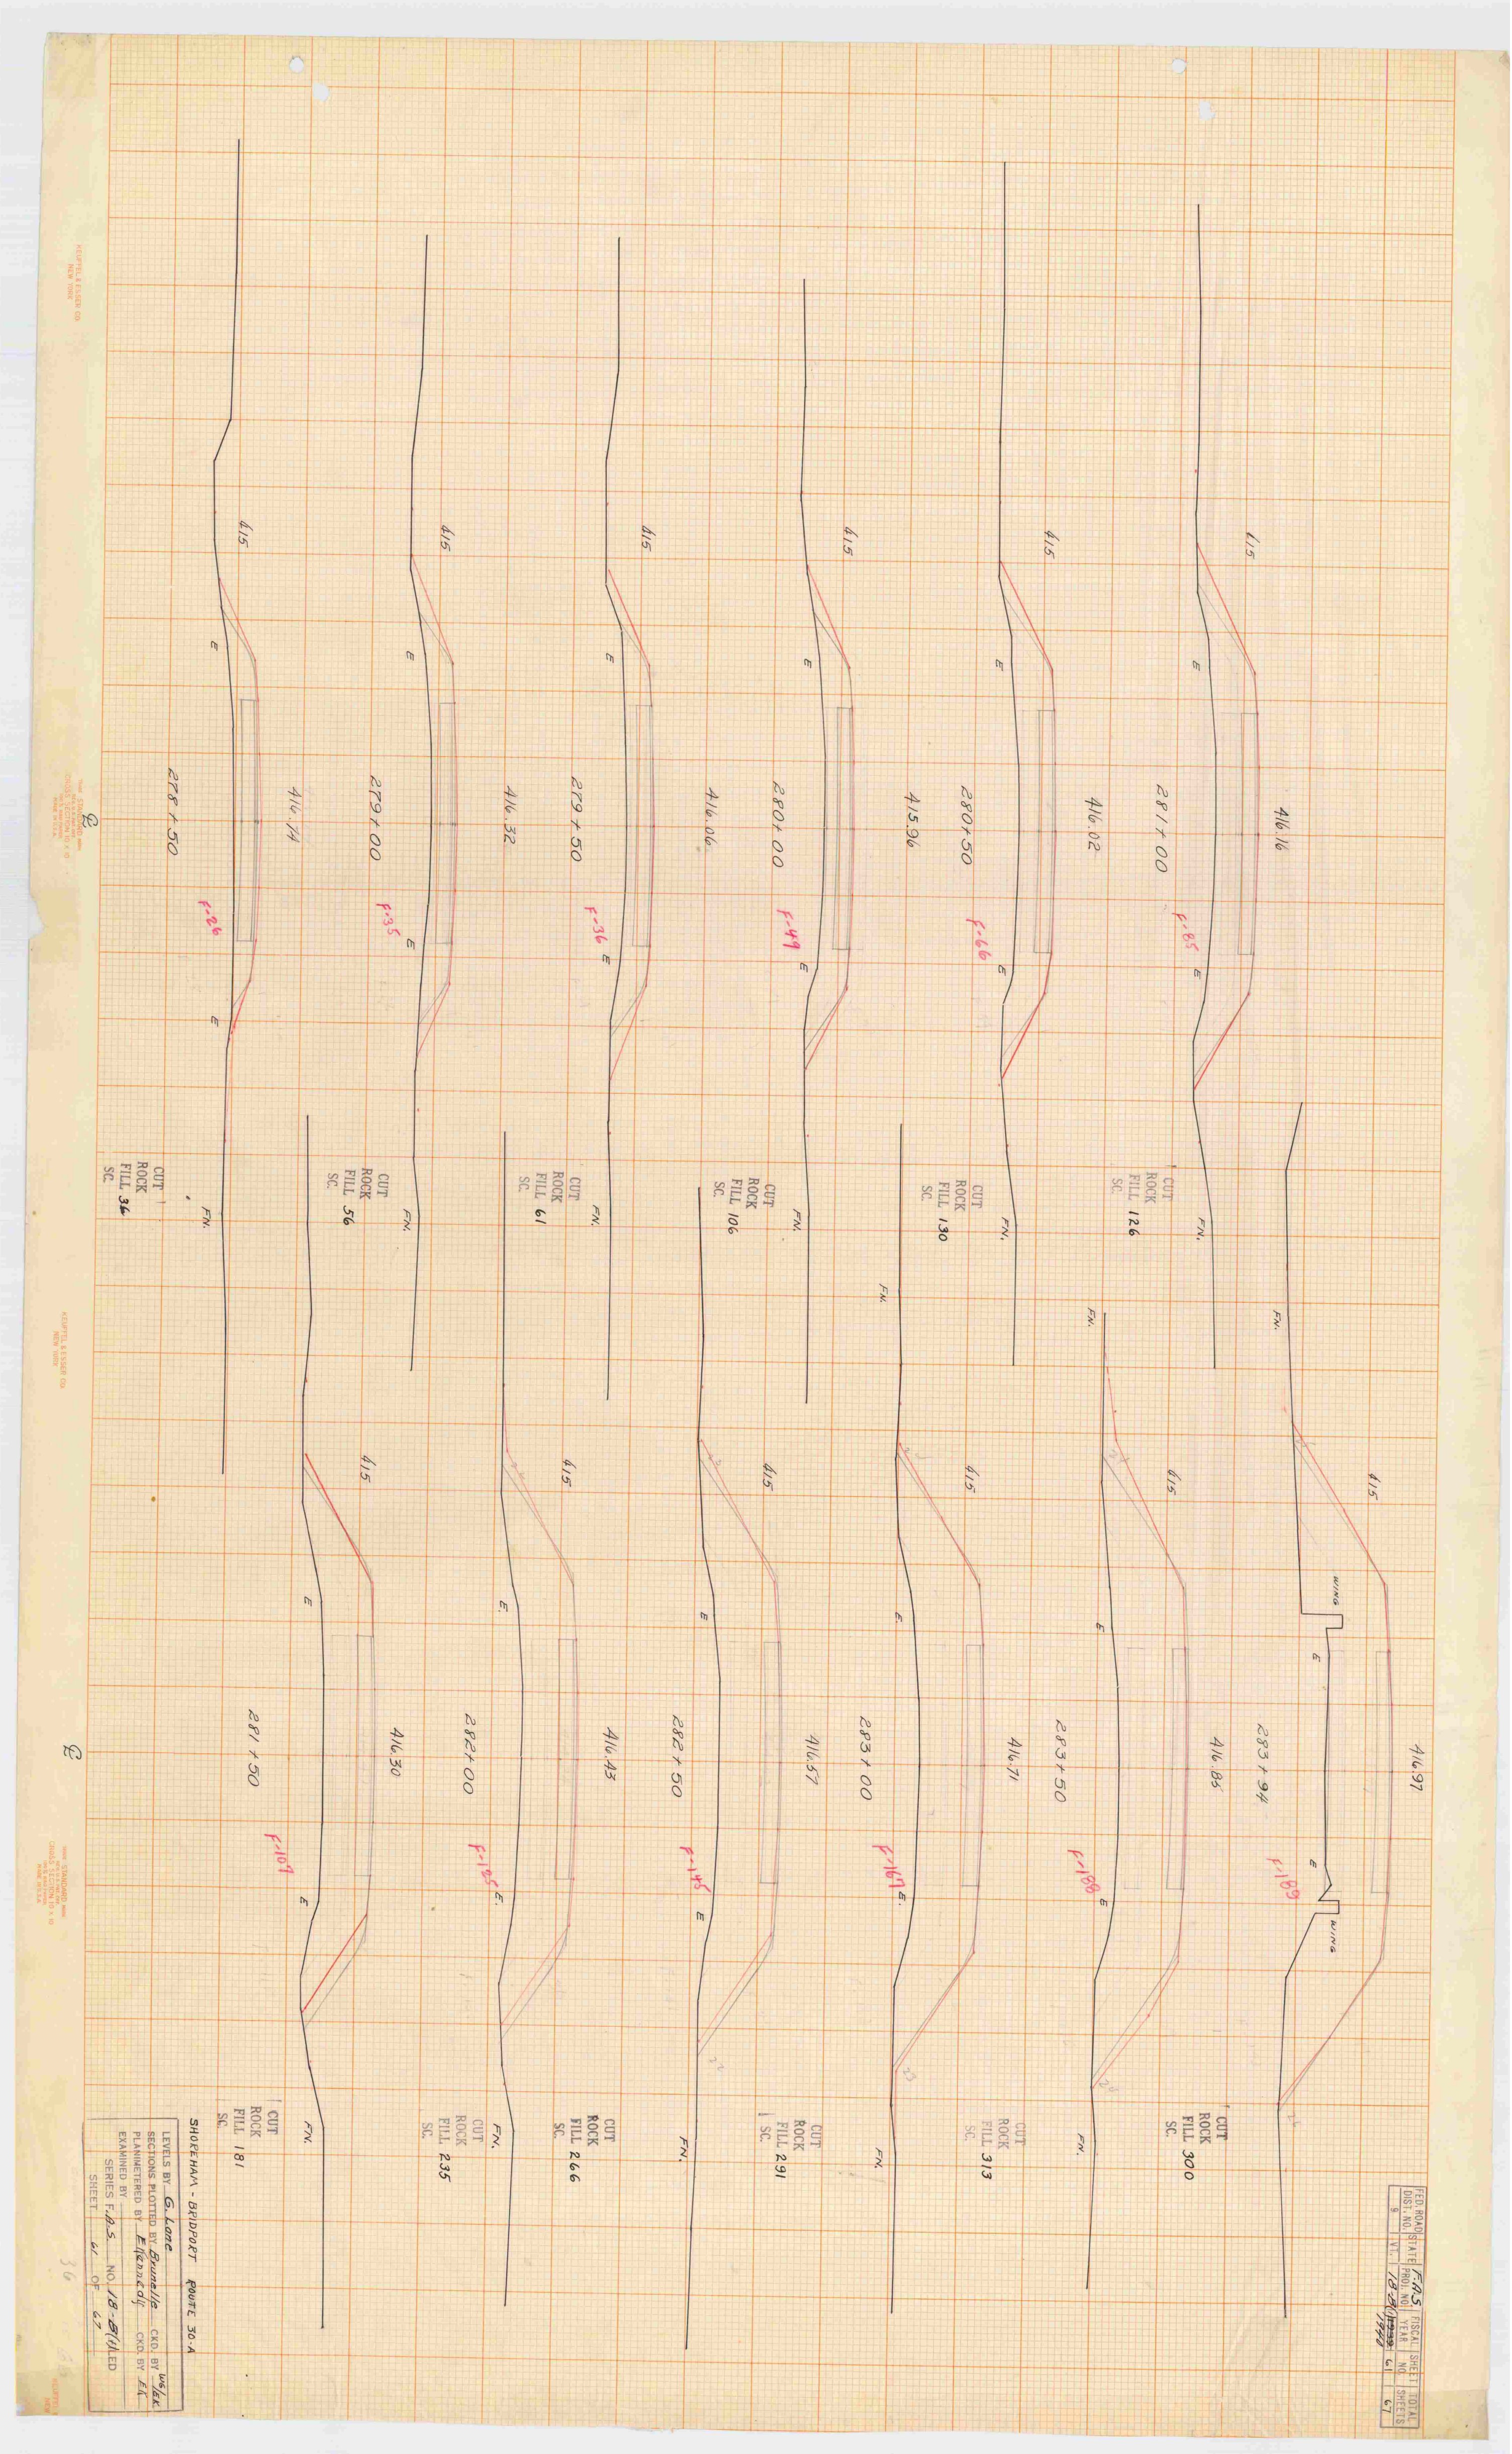 FED. ROAD DIST. NO. STATE F.A.S. PROJ. NO. FISCAL YEAR SHEET NO. TOTAL SHEETS
9 VT. 18-B(1) 1940 61 67
416.16
281+00
F-85
415
E
E
FN.
CUT
ROCK
FILL 126
SC.
416.02
280+50
F-66
415
E
E
FN.
CUT
ROCK
FILL 130
SC.
415.96
280+00
F-49
415
E
E
FN.
CUT
ROCK
FILL 106
SC.
416.06
279+50
F-36
415
E
E
FN.
CUT
ROCK
FILL 61
SC.
416.32
279+00
F-35
415
E
E
FN.
CUT
ROCK
FILL 56
SC.
416.74
278+50
F-26
415
E
E
FN.
CUT
ROCK
FILL 36
SC.
416.97
283+94
F-189
415
WING
E
E
WING
FN.
CUT
ROCK
FILL 300
SC.
416.86
283+50
F-188
415
E
E
FN.
FN.
CUT
ROCK
FILL 313
SC.
416.71
283+00
F-167
415
E.
E.
FN.
FN.
CUT
ROCK
FILL 291
SC.
416.57
282+50
F-145
415
E
E
FN.
CUT
ROCK
FILL 266
SC.
416.43
282+00
415
E.
E.
FN.
CUT
ROCK
FILL 235
SC.
416.30
281+50
F-107
415
E
E
FN.
CUT
ROCK
FILL 181
SC.
SHOREHAM - BRIDPORT ROUTE 30-A
LEVELS BY G. Lane
SECTIONS PLOTTED BY Brunelle CKD. BY WG/EK
PLANIMETERED BY E Kennedy CKD. BY EK
EXAMINED BY
SERIES F.A.S. NO. 18-B(1) LED
SHEET 61 OF 67
KEUFFEL & ESSER CO.
NEW YORK
KEUFFEL & ESSER CO.
NEW YORK